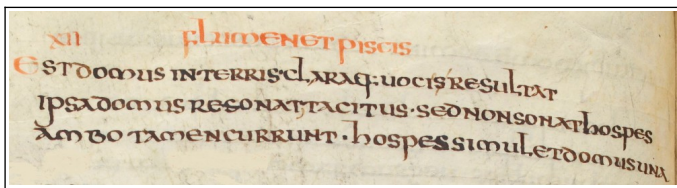 XII FLUMEN ET PISCIS
EST DOMUS IN TERRIS·CLARAQ: UOCIS RESULTAT
IPSA DOMUS RESONAT TACITUS·SED NON SONAT hOSPES
AMBO TAMEN CURRUNT·hOSPES SIMUL ET DOMUS UNA